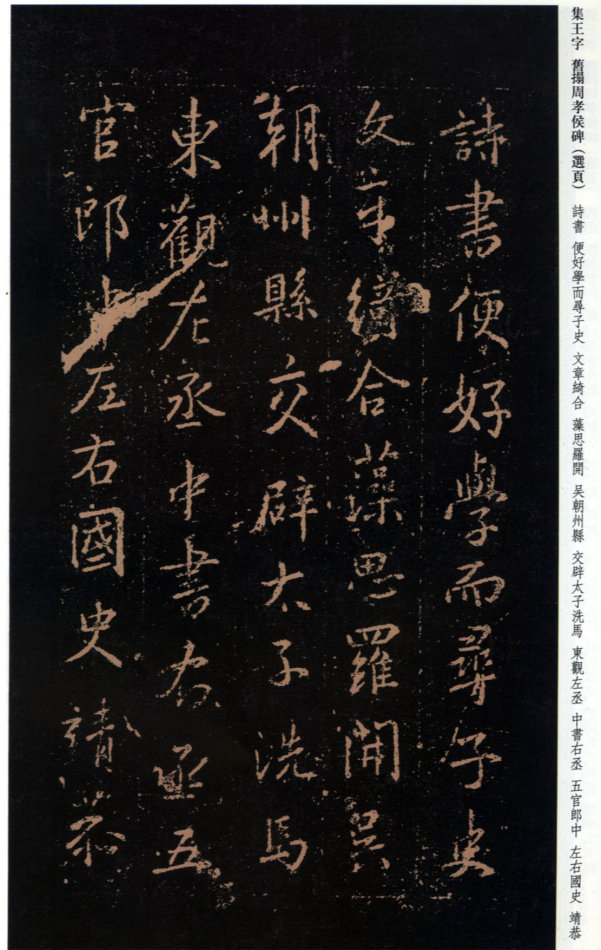 集王字 舊搨周孝侯碑（選頁） 詩書 便好學而尋子史 文章綺合 藻思羅開 吴朝州縣 交辟太子洗馬 東觀左丞 中書右丞 五官郎中 左右國史 靖恭
詩書便好學而尋子史
文章綺合藻思羅開吴
朝州縣交辟太子洗馬
東觀左丞中書右丞五
官郎中左右國史靖恭